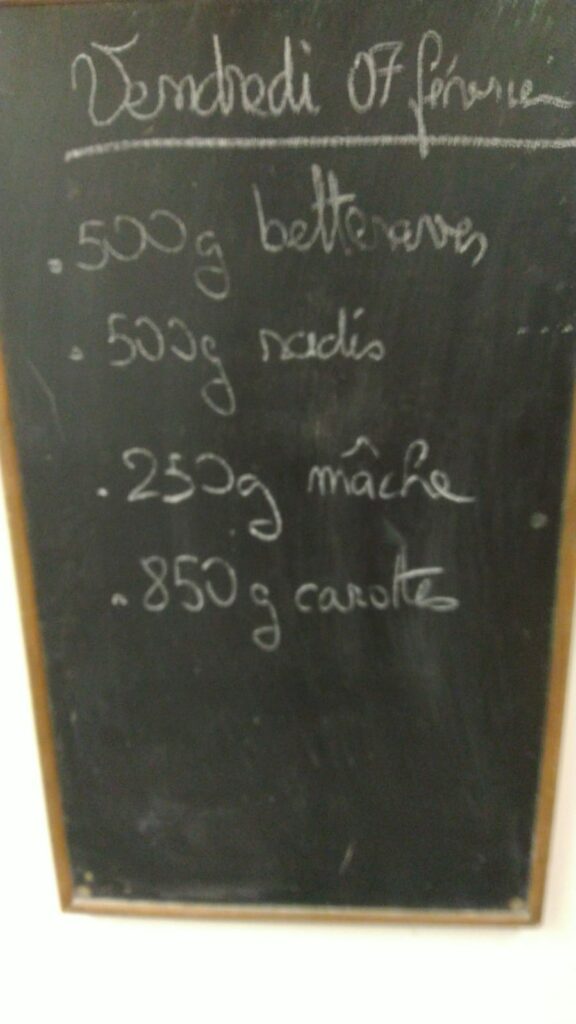 Vendredi 07 février
. 500g betteraves
. 500g radis
. 250g mâche
. 850g carottes